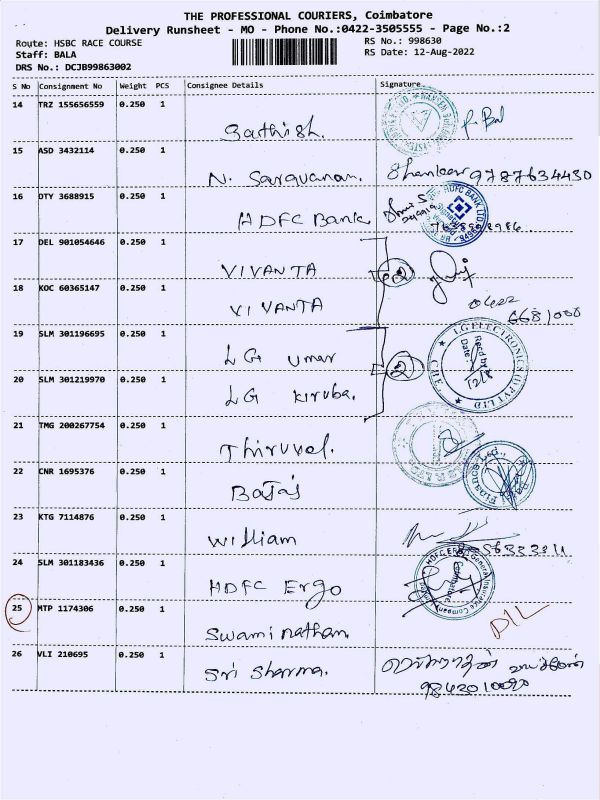 THE PROFESSIONAL COURIERS, Coimbatore
Delivery Runsheet - MO - Phone No.:0422-3505555 - Page No.:2
Route: HSBC RACE COURSE
RS No.: 998630
Staff: BALA
RS Date: 12-Aug-2022
DRS No.: DCJB99863002
S No Consignment No Weight PCS Consignee Details Signature
14 TRZ 155656559 0.250 1
Sathish.
15 ASD 3432114 0.250 1
N. Sarguanan. Shankar 9787634430
16 DTY 3688915 0.250 1
HDFC Bank HDFC BANK LTD
17 DEL 901054646 0.250 1
VIVANTA 2
18 KOC 60365147 0.250 1
VIVANTA 0422
6681000
19 SLM 301196695 0.250 1
LG Umar LG ELECTRONICS (I) PVT LTD
Recd by
Date: 12/8
CBE
20 SLM 301219970 0.250 1
LG Kiruba. 2
21 TMG 200267754 0.250 1
Thiruvel.
22 CNR 1695376 0.250 1
Bajaj Finance Ltd.,
23 KTG 7114876 0.250 1
William
24 SLM 301183436 0.250 1
HDFC Ergo HDFC ERGO General Insurance Company Limited
Coimbatore
25 MTP 1174306 0.250 1
Swaminathan. D/L
26 VLI 210695 0.250 1
Sri Sharma.